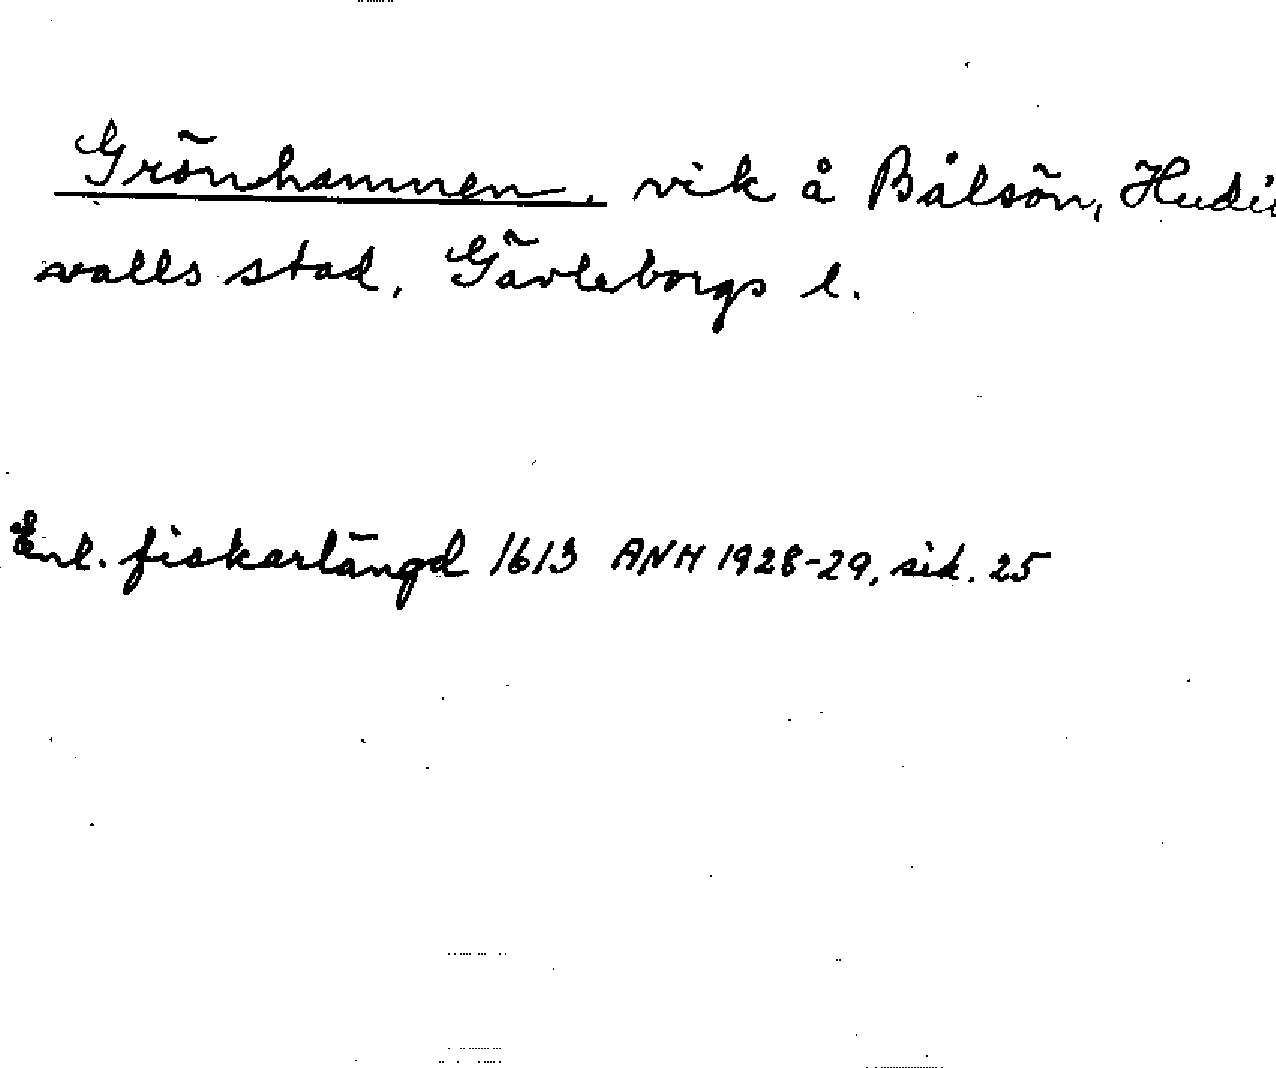 Grönhamnen, vik å Bålsön, Hudi
valls stad, Gävleborgs l.
Enl. fiskarlängd 1613 ANH 1928-29, sid. 25